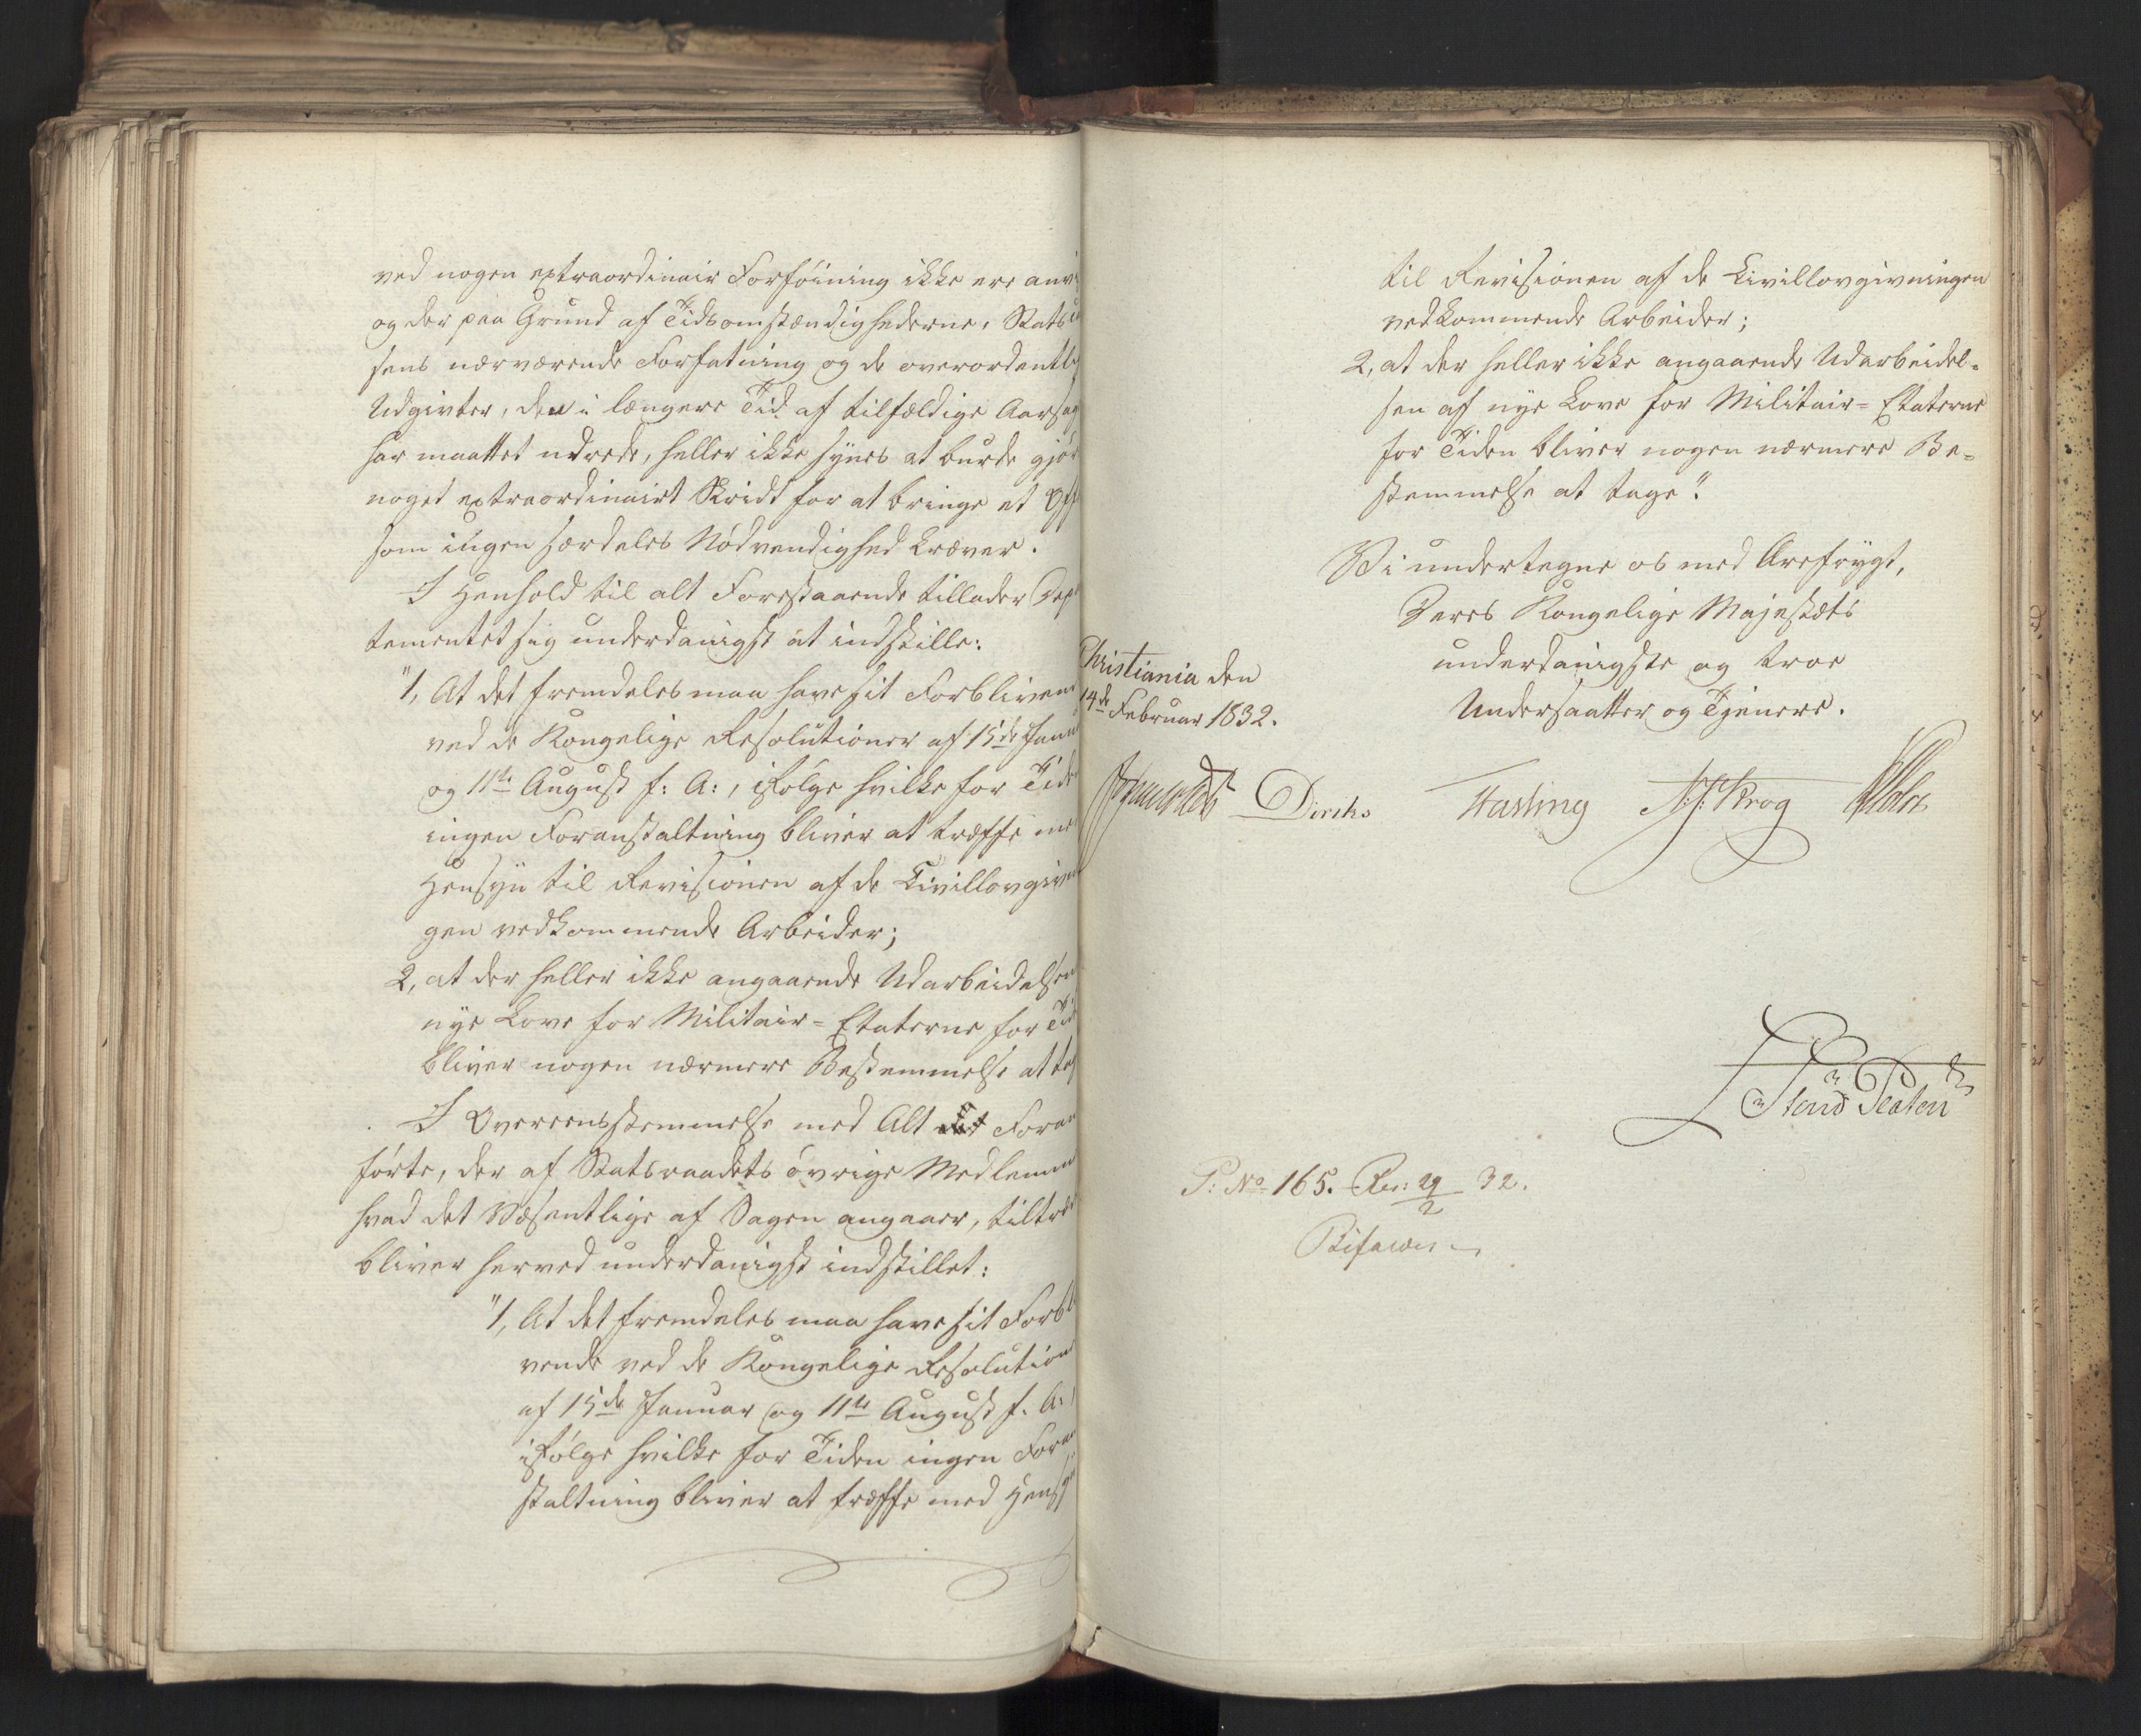 ved nogen extraordinair Forføining ikke ere anvi
og der paa Grund af Tidsomstændighederne, Stats
sens nærværende Forfatning og de overordentli
Udgivter, den i længere Tid af tilfældige Aarsag
har maattet udrede, heller ikke synes at burde gjør
noget extraordinairt Skridt for at bringe et Off
som ingen særdeles Nødvendighed kræver.
I Henhold til alt Forestaaende tillader Dep
tementet sig underdanigst at indstille:
"1, At det fremdeles maa have sit Forbliven
ved de Kongelige Resolutioner af 15de Janu
og 11te August f: A:, ifølge hvilke for Tide
ingen Foranstaltning bliver at træffe me
Hensyn til Revisionen af de Civillovgivn
gen vedkommende Arbeider;
2, at der heller ikke angaaende Udarbeidelsen
nye Love for Militair=Etaterne for Tid
bliver nogen nærmere Bestemmelse at tag
I Overeensstemmelse med Alt Foran
førte, der af Statsraadets øvrige Medlemm
hvad det Væsentlige af Sagen angaaer, tiltræd
bliver herved underdanigst indstillet:
"1, At det fremdeles maa have sit Forbli
vende ved de Kongelige Resolution
af 15de Januar og 11te August f. A:,
ifølge hvilke for Tiden ingen Foran
staltning bliver at træffe med Hensy
til Revisionen af de Civillovgivningen
vedkommende Arbeider;
2, at der heller ikke angaaende Udarbeidel=
sen af nye Love for Militair=Etaterne
for Tiden bliver nogen nærmere Be=
stemmelse at tage".
Vi undertegne os med Ærefrygt,
Deres Kongelige Majestæts
underdanigste og troe
Undersaatter og Tjenere.
Christiania den
14de Februar 1832.
Diriks Fasting Krog
Platen
P: No 165. Res: 29/2 32.
Bifaldes